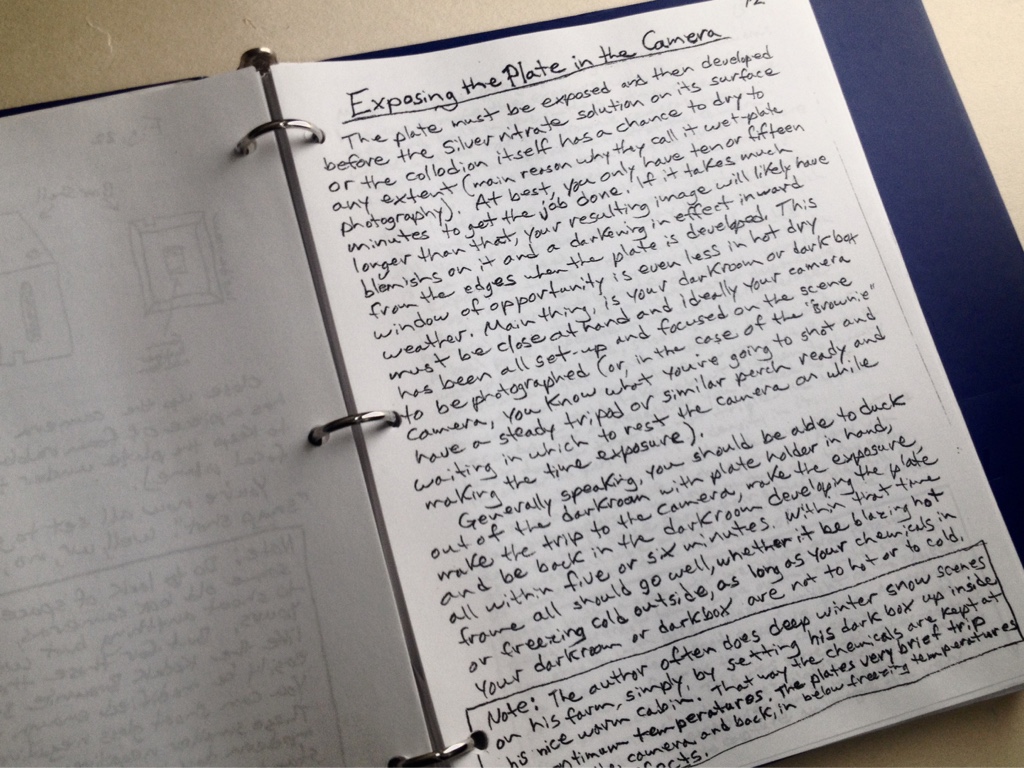 Exposing the Plate in the Camera
The plate must be exposed and then developed
before the silver nitrate solution on its surface
or the collodion itself has a chance to dry to
any extent (main reason why they call it wet-plate
photography). At best, you only have ten or fifteen
minutes to get the job done. If it takes much
longer than that, your resulting image will likely have
blemishes on it and a darkening in effect inward
from the edges when the plate is developed. This
window of opportunity is even less in hot dry
weather. Main thing, is your darkroom or dark box
must be close at hand and ideally your camera
has been all set-up and focused on the scene
to be photographed (or, in the case of the "Brownie"
camera, you know what you're going to shot and
have a steady tripod or similar perch ready and
waiting in which to rest the camera on while
making the time exposure).
Generally speaking, you should be able to duck
out of the darkroom with plate holder in hand,
make the trip to the camera, make the exposure,
and be back in the darkroom developing the plate
all within five or six minutes. Within that time
frame all should go well, whether it be blazing hot
or freezing cold outside, as long as your chemicals in
your darkroom or darkbox are not to hot or to cold.
Note: The author often does deep winter snow scenes
on his farm, simply by setting his dark box up inside
his nice warm cabin. That way the chemicals are kept at
temperatures. The plates very brief trip
camera and back, in below freezing temperatures